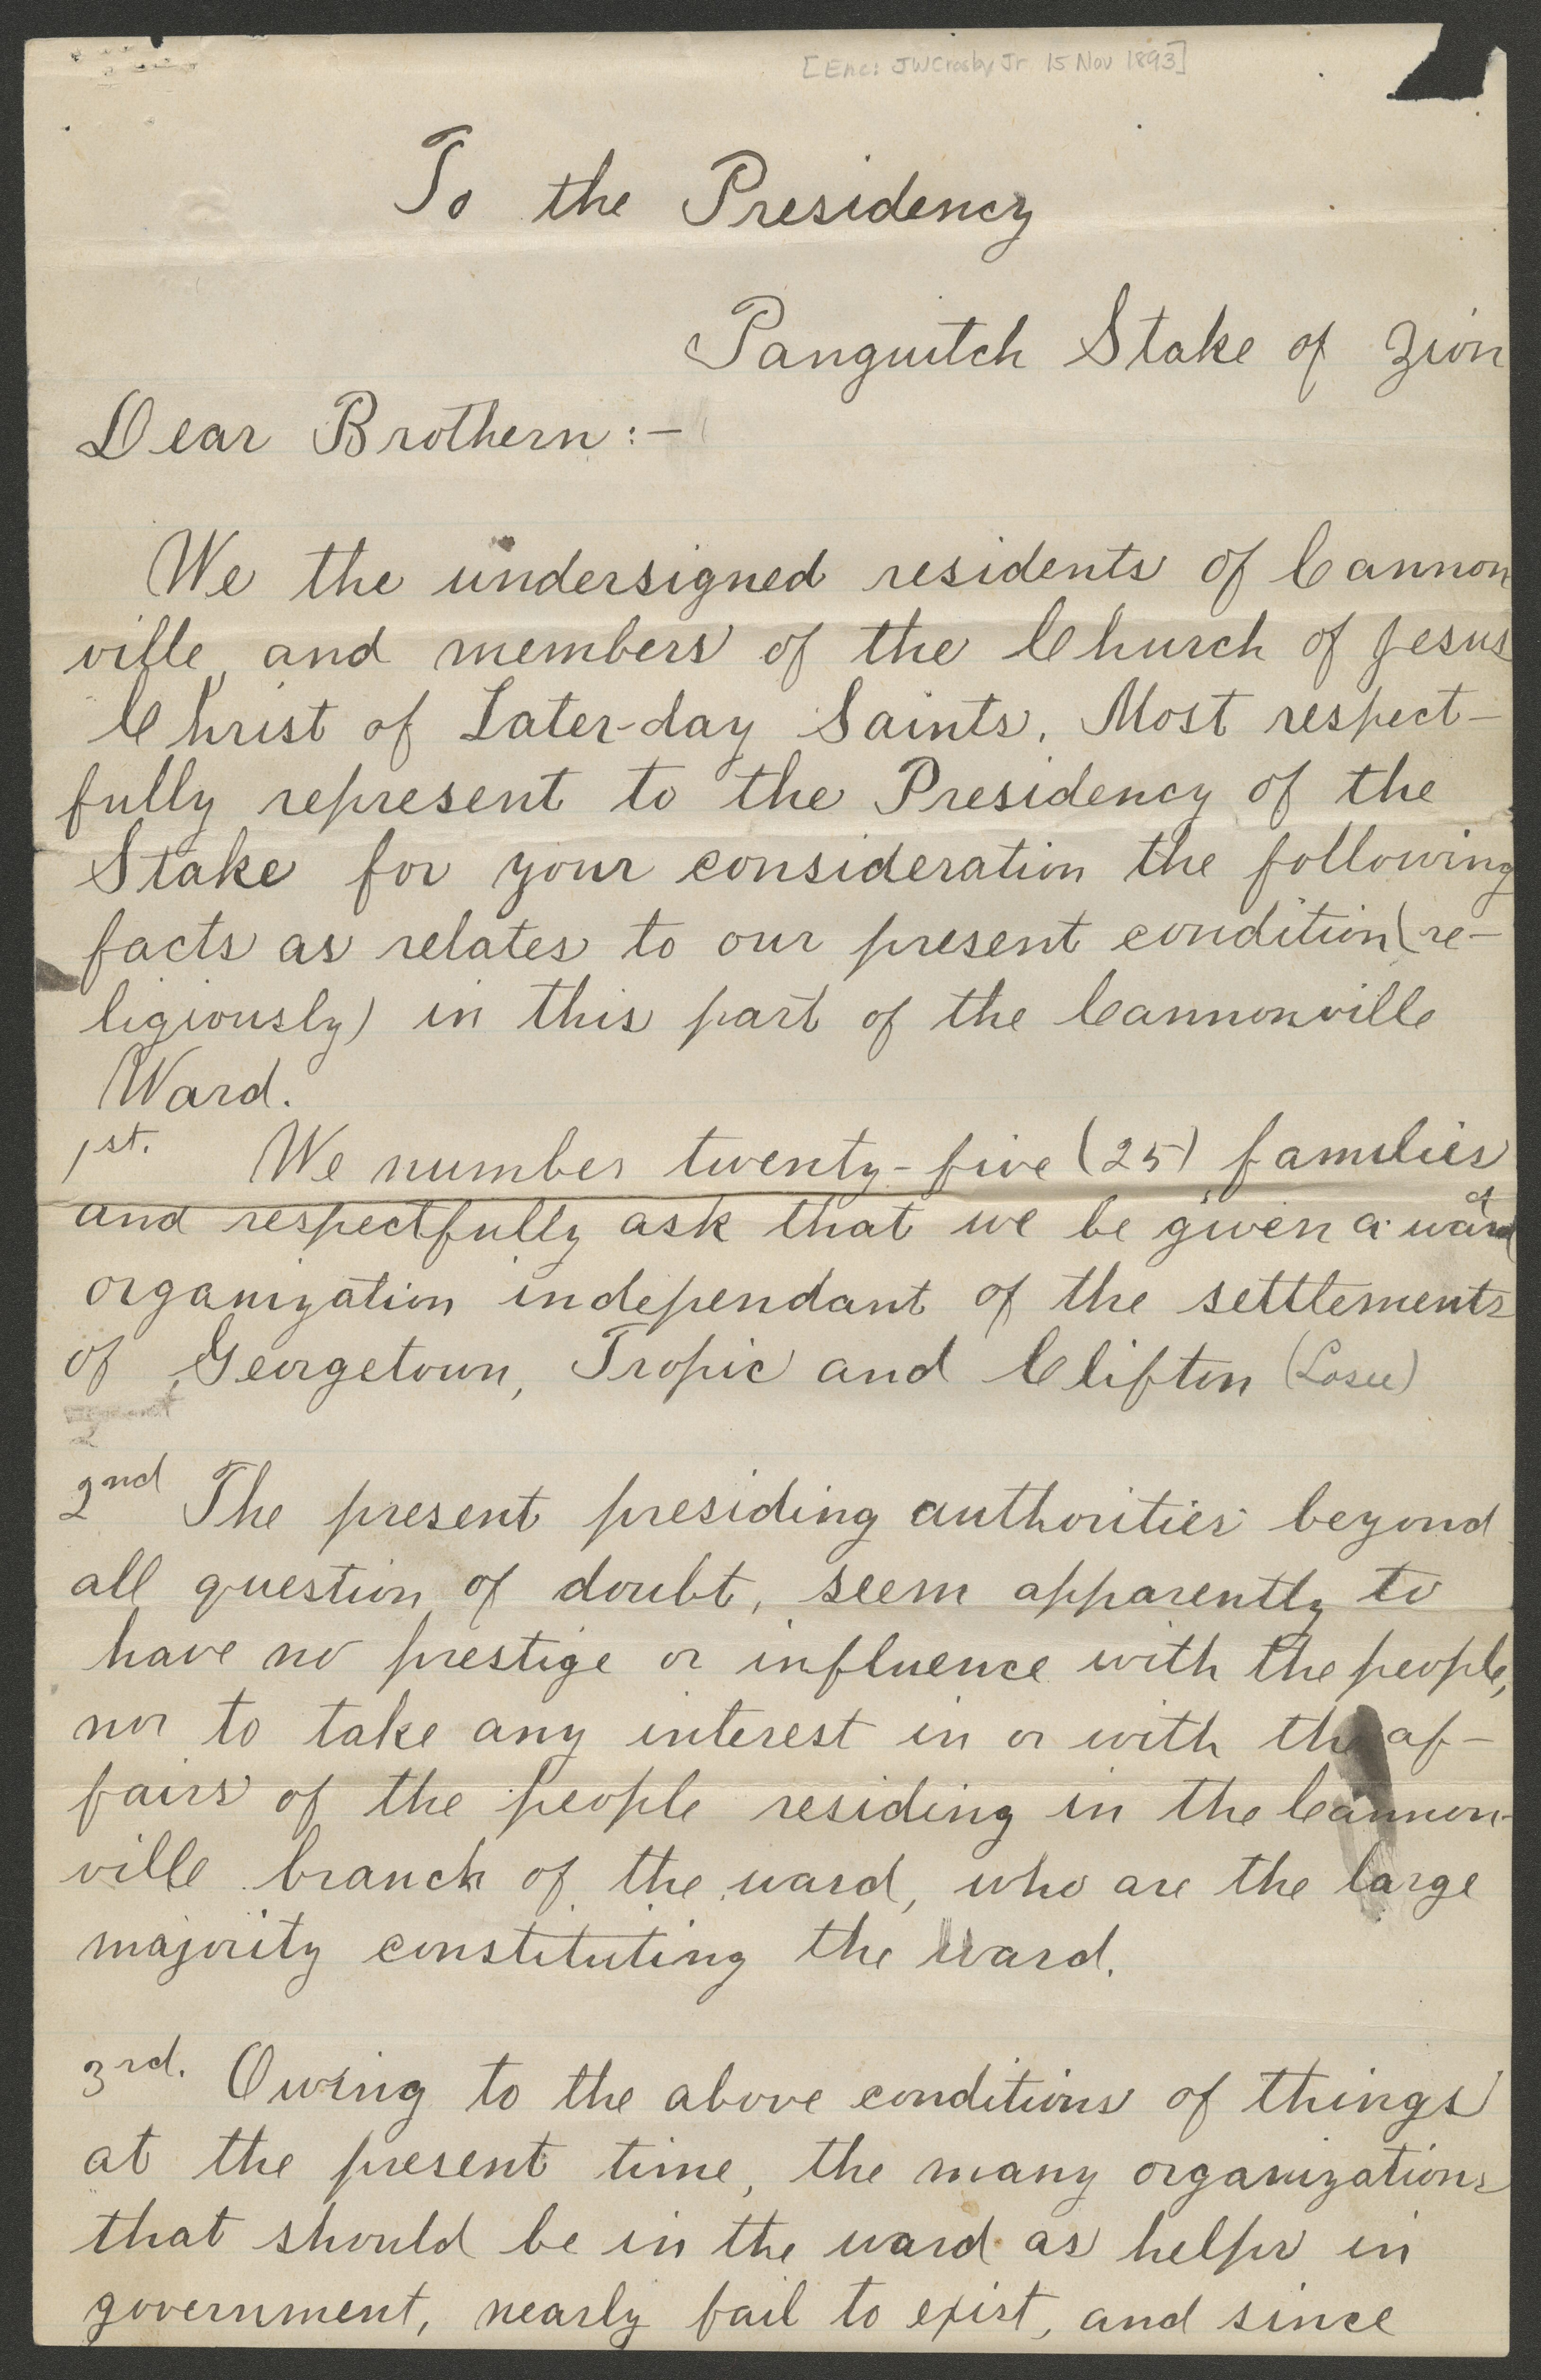 [Enc: JWCrosby Jr 15 Nov 1893]
To the Presidency
Panguitch Stake of Zion
Dear Brothern:-
We the undersigned residents of Cannon
ville, and members of the Church of Jesus
Christ of Later-day Saints. Most respect-
fully represent to the Presidency of the
Stake for your consideration the following
facts as relates to our present condition (re-
ligiously) in this part of the Cannonville
Ward.
1st. We number twenty-five (25) families
and respectfully ask that we be given a ward
organization independant of the settlements
of Georgetown, Tropic and Clifton (Losee)
2nd The present presiding authorities beyond
all question of doubt, seem apparently to
have no prestige or influence with the people,
nor to take any interest in or with the af-
fairs of the people residing in the Cannon-
ville branch of the ward, who are the large
majority constituting the ward.
3rd. Owing to the above conditions of things
at the present time, the many organizations
that should be in the ward as helps in
government, nearly fail to exist, and since